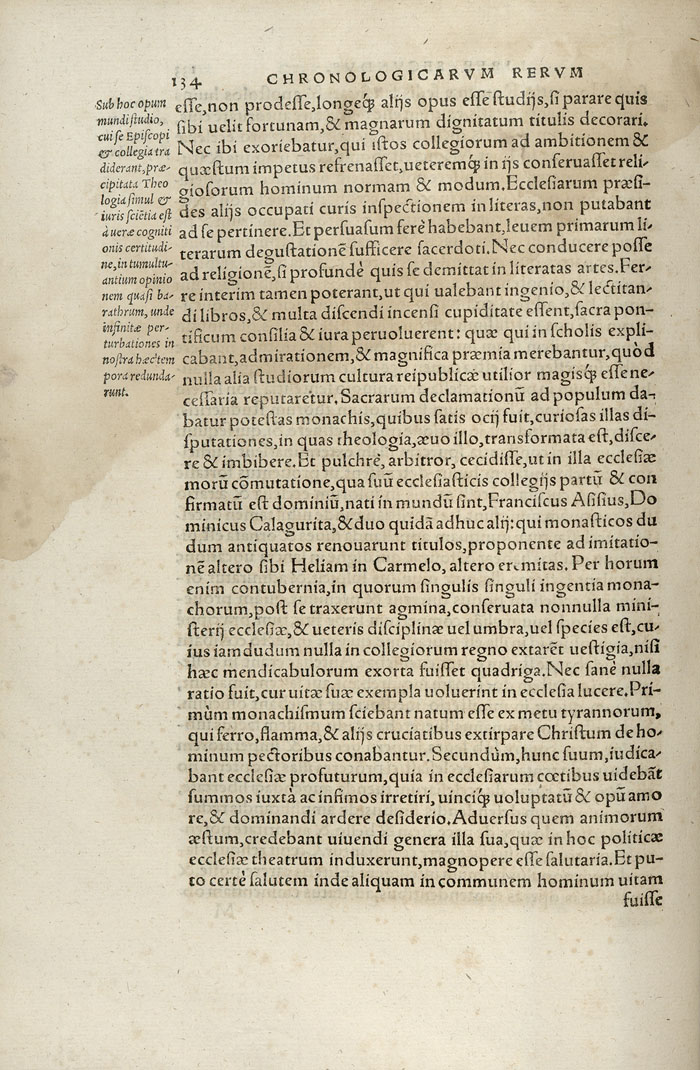 134 CHRONOLOGICARVM RERVM
Sub hoc opum
mundi studio,
cui se Episcopi
& collegia tra
diderant, præ-
cipitata Theo
logia simul &
iuris sciētia est
à ueræ cogniti
onis certitudi-
ne, in tumultu-
antium opinio
nem quasi ba-
rathrum, unde
infinitæ per-
turbationes in
nostra hæc tem
pora redunda-
runt.
esse, non prodesse, longeq́; alijs opus esse studijs, si parare quis
sibi uelit fortunam, & magnarum dignitatum titulis decorari.
Nec ibi exoriebatur, qui istos collegiorum ad ambitionem &
quæstum impetus refrenasset, ueteremq́; in ijs conseruasset reli-
giosorum hominum normam & modum. Ecclesiarum præsi-
des alijs occupati curis inspectionem in literas, non putabant
ad se pertinere. Et persuasum ferè habebant, leuem primarum li-
terarum degustationē sufficere sacerdoti. Nec conducere posse
ad religionē, si profundè quis se demittat in literatas artes. Fer-
re interim tamen poterant, ut qui ualebant ingenio, & lectitan-
di libros, & multa discendi incensi cupiditate essent, sacra pon-
tificum consilia & iura peruoluerent: quæ qui in scholis expli-
cabant, admirationem, & magnifica præmia merebantur, quòd
nulla alia studiorum cultura reipublicæ utilior magisq́; esse ne-
cessaria reputaretur. Sacrarum declamationū ad populum da-
batur potestas monachis, quibus satis ocij fuit, curiosas illas di-
sputationes, in quas theologia, æuo illo, transformata est, disce-
re & imbibere. Et pulchrè, arbitror, cecidisse, ut in illa ecclesiæ
morū cōmutatione, qua suū ecclesiasticis collegijs partū & con
firmatū est dominiū, nati in mundū sint, Franciscus Asisius, Do
minicus Calagurita, & duo quidā adhuc alij: qui monasticos du
dum antiquatos renouarunt titulos, proponente ad imitatio-
nē altero sibi Heliam in Carmelo, altero eremitas. Per horum
enim contubernia, in quorum singulis singuli ingentia mona-
chorum, post se traxerunt agmina, conseruata nonnulla mini-
sterij ecclesiæ, & ueteris disciplinæ uel umbra, uel species est, cu-
ius iamdudum nulla in collegiorum regno extarēt uestigia, nisi
hæc mendicabulorum exorta fuisset quadriga. Nec sanè nulla
ratio fuit, cur uitæ suæ exempla uoluerint in ecclesia lucere. Pri-
mùm monachismum sciebant natum esse ex metu tyrannorum,
qui ferro, flamma, & alijs cruciatibus extirpare Christum de ho-
minum pectoribus conabantur. Secundùm, hunc suum, iudica-
bant ecclesiæ profuturum, quia in ecclesiarum cœtibus uidebāt
summos iuxtà ac infimos irretiri, uinciq́; uoluptatū & opū amo
re, & dominandi ardere desiderio. Aduersus quem animorum
æstum, credebant uiuendi genera illa sua, quæ in hoc politicæ
ecclesiæ theatrum induxerunt, magnopere esse salutaria. Et pu-
to certè salutem inde aliquam in communem hominum uitam
fuisse